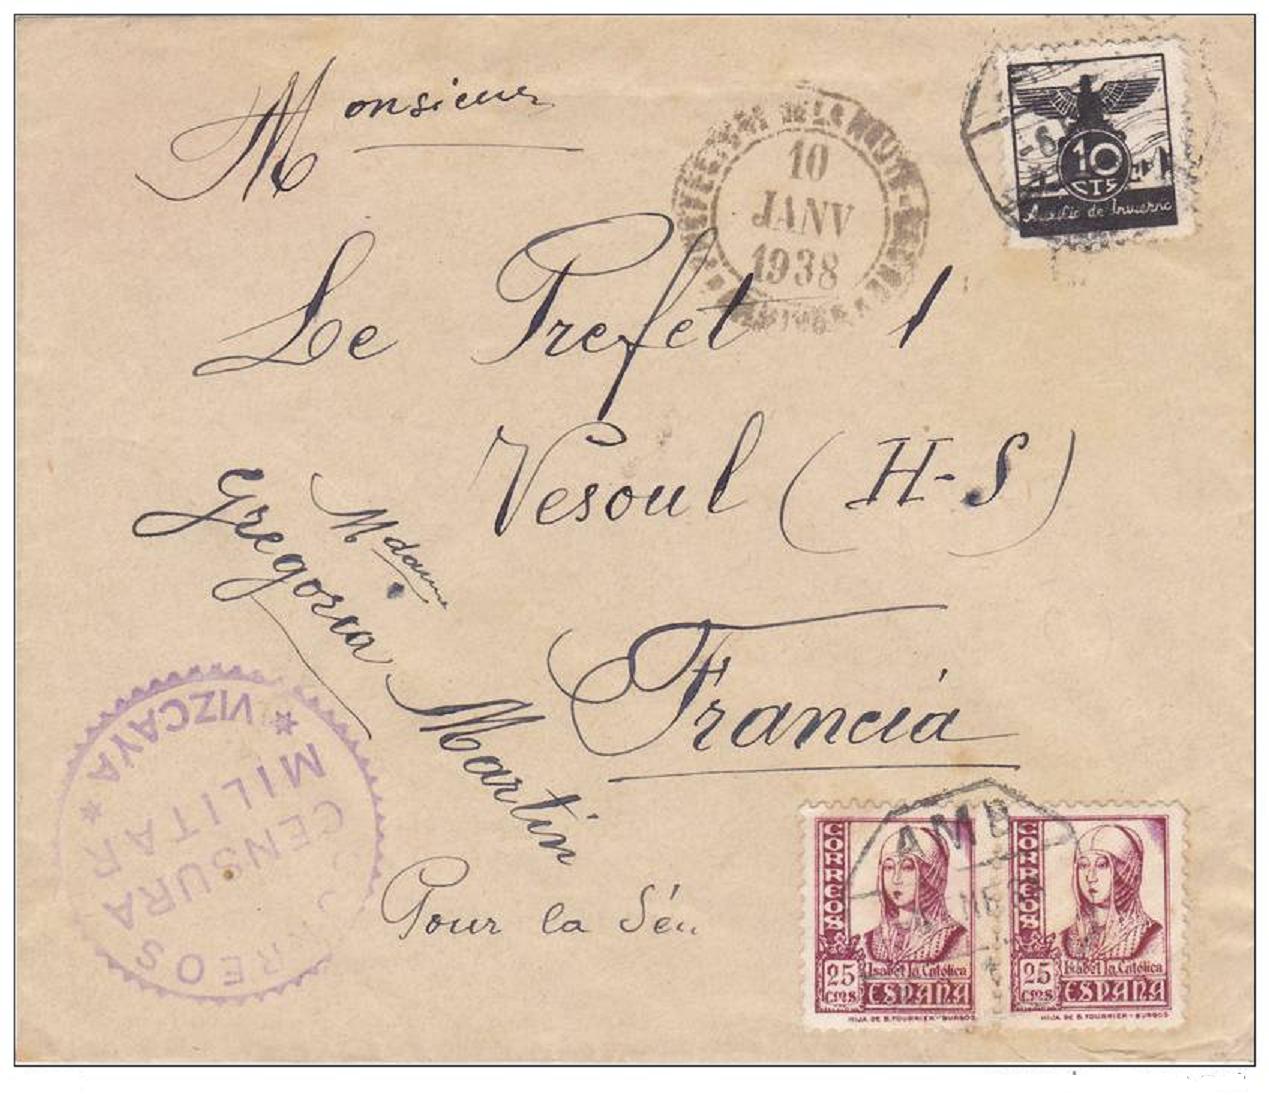 Monsieur
Le Prefet
Vesoul (H-S)
Francia
Mdame
Gregoria Martin
Pour la
10
JANV
1938
10
CTS
Auxilio de Invierno
CORREOS
CENSURA
MILITAR
* VIZCAYA *
AMB
CORREOS
25
CTMS
Isabel la Católica
ESPAÑA
HIJA DE B. FOURNIER-BURGOS
CORREOS
25
CTMS
Isabel la Católica
ESPAÑA
HIJA DE B. FOURNIER-BURGOS